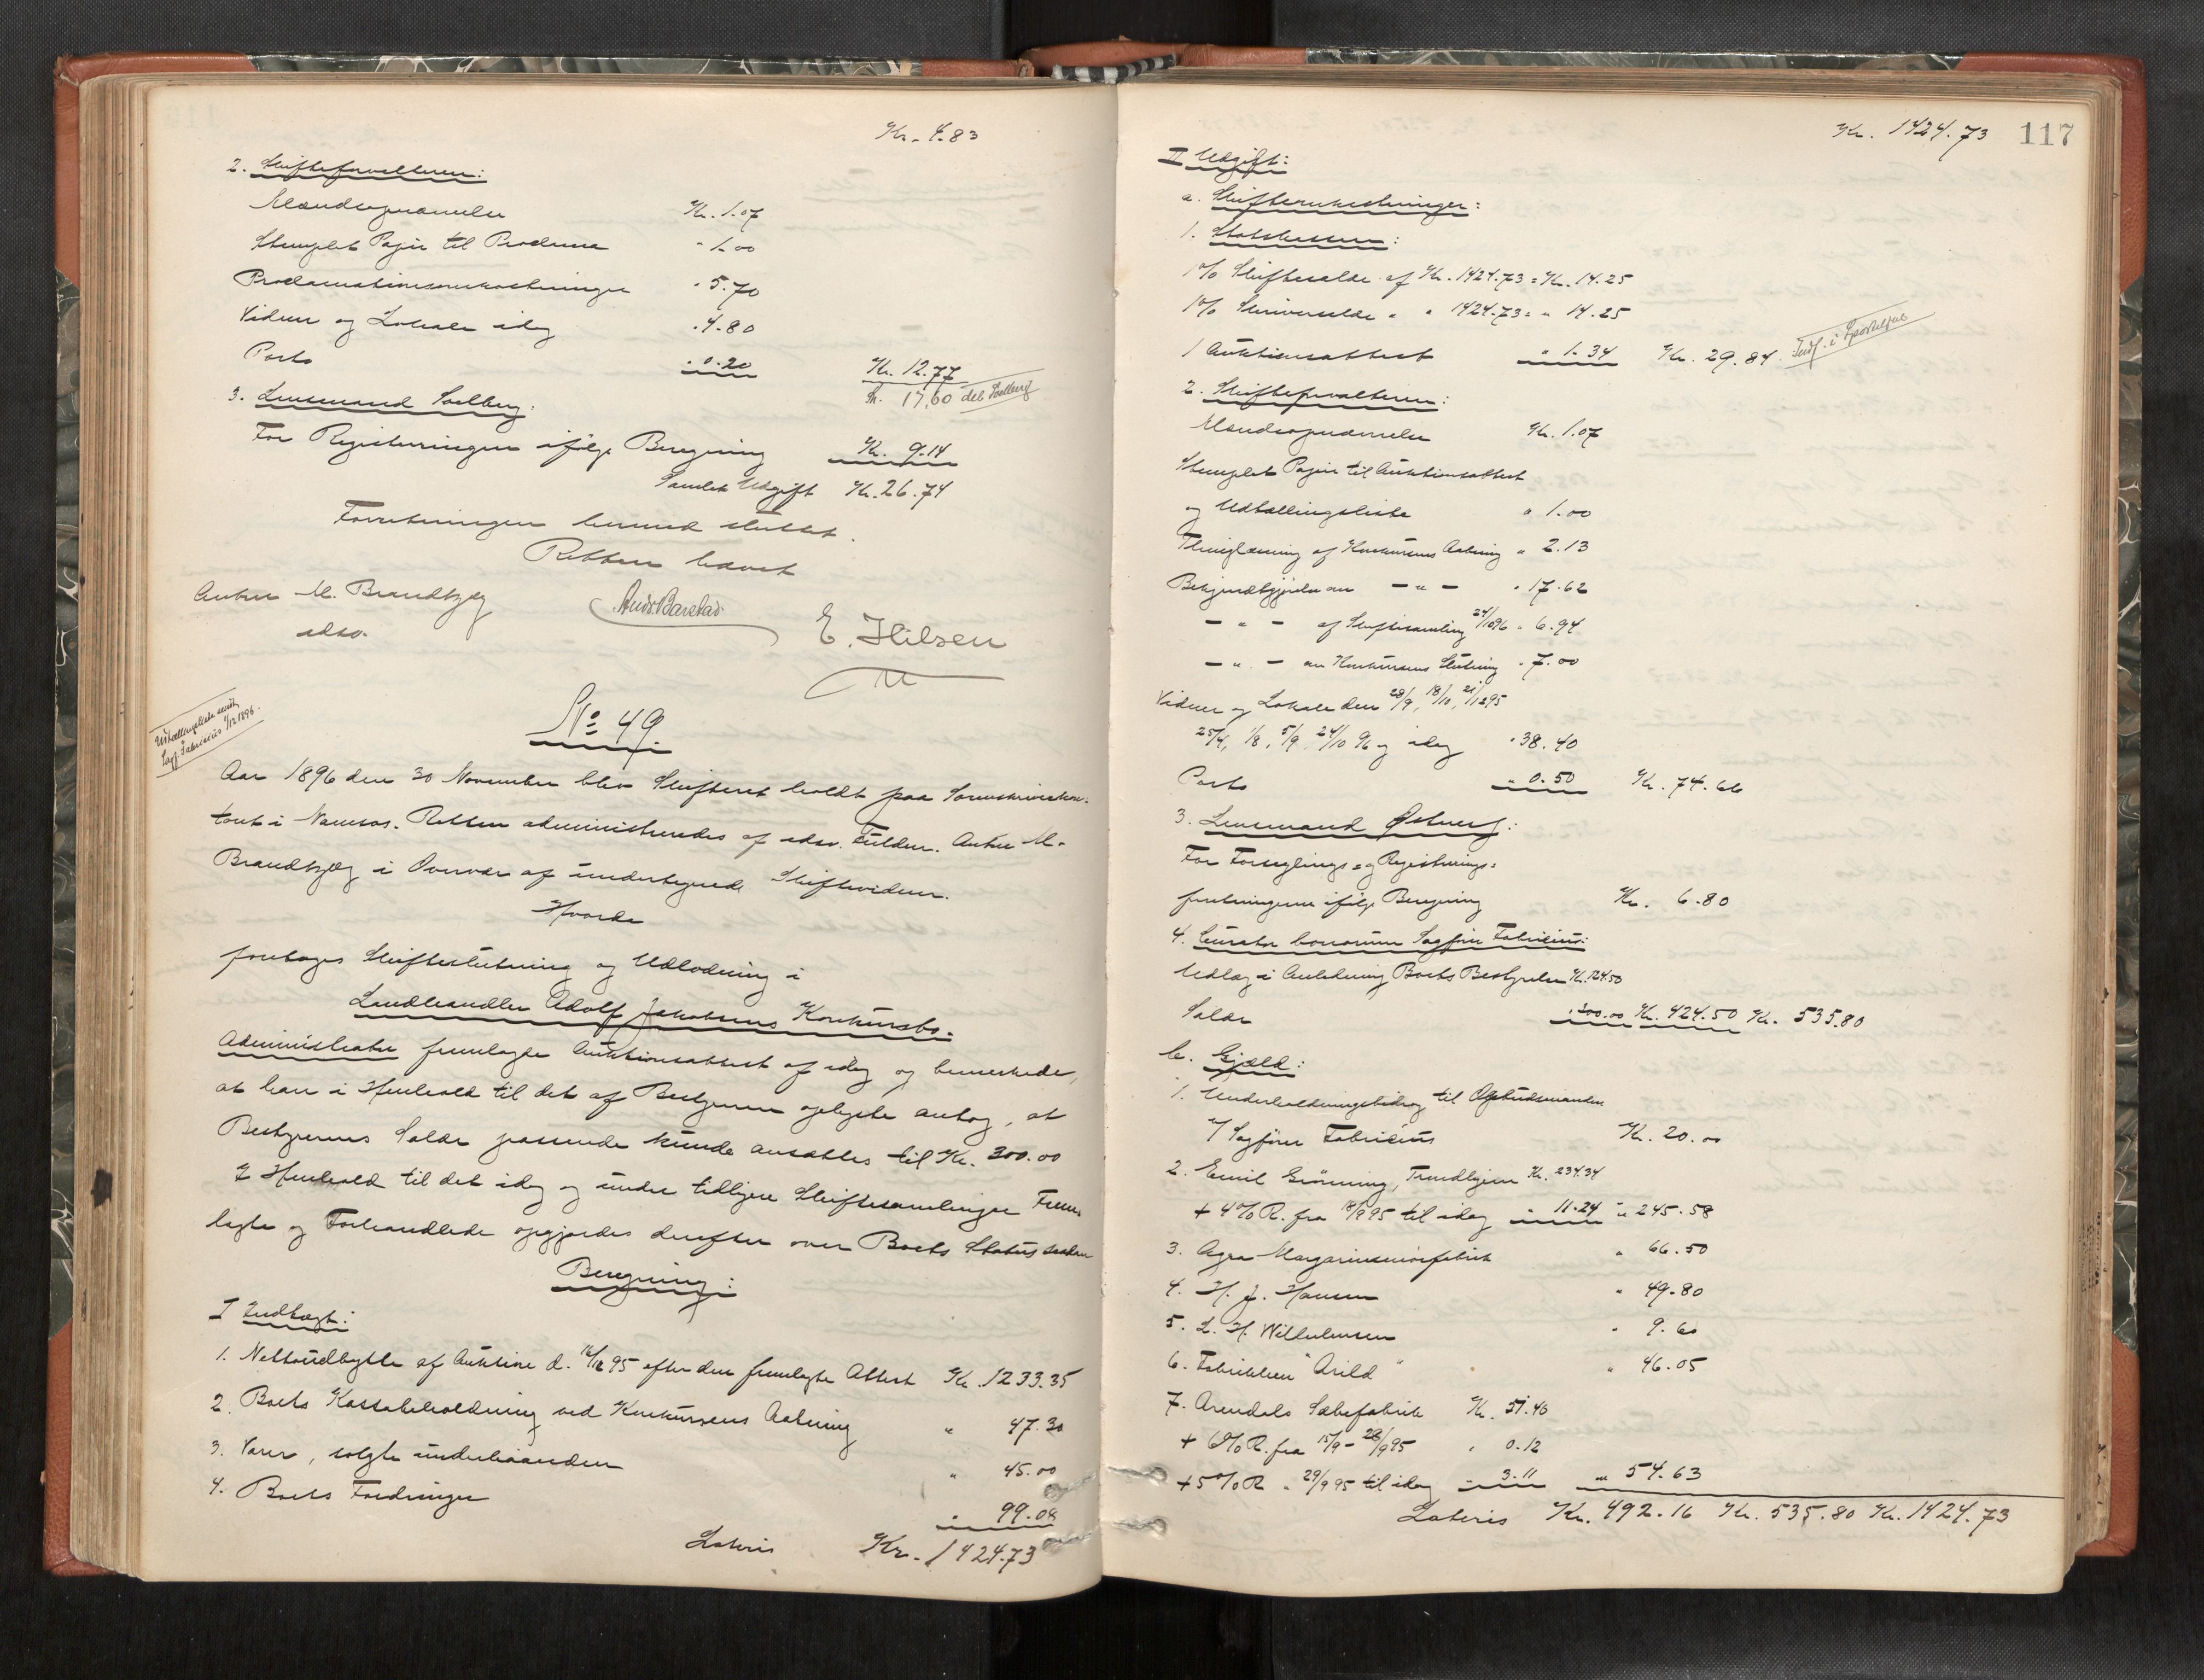 Kr. 4.83
2. Skifteforvalteren:
Mændsopnævnelse Kr. 1.07
Stemplet Papir til Proclama " 1.00
Proclamationsomkostninger " 5.70
Vidner og Lokale idag " 4.80
Porto " 0.20 Kr. 12.77
Kr. 17,60 del. Soelberg
3. Lensmand Soelberg:
For Registreringen ifølge Beregning Kr. 9.14
Samlet Udgift Kr. 26.74
Forretningen hermed sluttet.
Retten hævet
Anton M. Brandtzæg
edsv.
Ands. Barstad
E. Hilsen
Udlodningsliste sendt
Sagf. Fabricius 1/12 1896.
No 49
Aar 1896 den 30 November blev Skifteret holdt paa Sorenskriverkon-
toret i Namsos. Retten administreredes af edsv. Fuldm. Anton M.
Brandtzæg i Overvær af undertegnede Skiftevidner.
Hvorda
foretoges Skifteslutning og Udlodning i
Landhandler Adolf Jakobsens Konkursbo.
Administrator fremlagte Auktionsattest af idag og bemerkede,
at han i Henhold til det af Bestyreren oplyste antog, at
Bestyrerens Salær passende kunde ansættes til Kr. 300.00
I Henhold til det idag og under tidligere Skiftesamlinger Frem-
lagte og Forhandlede opgjordes derefter over Boets Status saadan
Beregning:
I Indtægt:
1. Nettoudbytte af Auktion d. 16/12 95 efter den fremlagte Attest Kr. 1233.35
2. Boets Kassabeholdning ved Konkursens Aabning " 47.30
3. Varer, solgte underhaanden " 45.00
4. Boets Fordringer " 99.08
Lateris Kr. 1424.73
Kr. 1424.73 117
II Udgift:
a. Skifteomkostninger:
1. Statskassen:
1% Skiftesalær af Kr. 1424.73 = Kr. 14.25
1% Skriversalær " " 1424.73 = " 14.25
1 Auktionsattest " 1.34 Kr. 29.84 Indf. i Sporteljnl
2. Skifteforvalteren:
Mændsopnævnelse Kr. 1.07
Stemplet Papir til Auktionsattest
og Udtællingsliste " 1.00
Thinglæsning af Konkursens Aabning " 2.13
Bekjendtgjørelse om — " — " 17.62
— " — af Skiftesamling 24/10 96 " 6.94
— " — om Konkursens Slutning " 7.00
Vidner og Lokale den 28/9, 18/10, 21/12 95
25/4, 1/8, 5/9, 24/10 96 og idag " 38.40
Porto " 0.50 Kr. 74.66
3. Lensmand Østnes:
For Forseglings- og Registrerings-
forretningerne ifølge Beregning Kr. 6.80
4. Curator bonorum Sagfører Fabricius:
Udlæg i Anledning Boets Bestyrelse Kr. 124.50
Salær " 300.00 Kr. 424.50 Kr. 535.80
b. Gjæld:
1. Underholdningsbidrag til Opbudsmanden
v/ Sagfører Fabricius Kr. 20.00
2. Emil Grönning, Trondhjem Kr. 234.34
+ 4% R. fra 18/9 95 til idag " 11.24 " 245.58
3. Agra Margarinsmörfabrik " 66.50
4. H. J. Hansen " 49.80
5. L. H. Wilhelmsen " 9.60
6. Fabrikken "Arild" " 46.05
7. Arendals Sæbefabrik Kr. 51.40
+ 6% R. fra 15/9 - 28/9 95 " 0.12
+ 5% R. " 29/9 95 til idag " 3.11 " 54.63
Lateris Kr. 492.16 Kr. 535.80 Kr. 1424.73